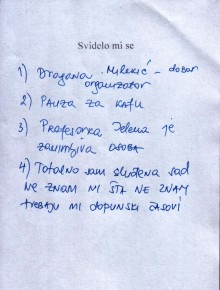 Svidelo mi se
1) Dragana Milekić - dobar
organizator
2) PAUZA ZA KAFU
3) Profesorka Jelena je
zanimljiva OSOBA
4) Totalno sam sluđena sad
NE ZNAM NI ŠTA NE ZNAM
trebaju mi dopunski časovi